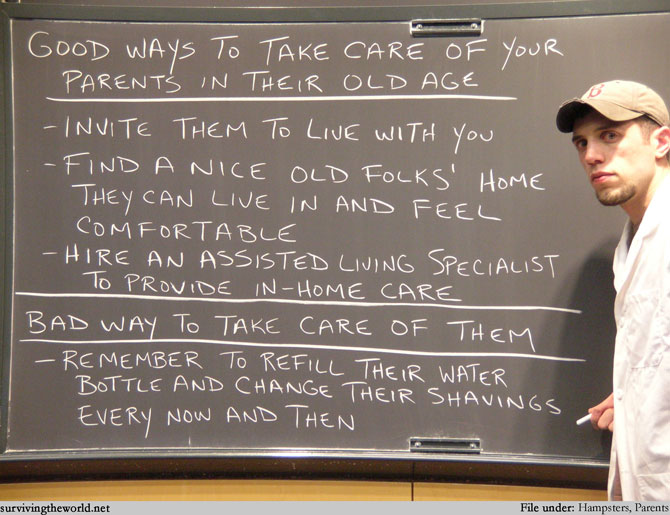 GOOD WAYS TO TAKE CARE OF YOUR
PARENTS IN THEIR OLD AGE
- INVITE THEM TO LIVE WITH YOU
- FIND A NICE OLD FOLKS' HOME
THEY CAN LIVE IN AND FEEL
COMFORTABLE
- HIRE AN ASSISTED LIVING SPECIALIST
TO PROVIDE IN-HOME CARE
BAD WAY TO TAKE CARE OF THEM
- REMEMBER TO REFILL THEIR WATER
BOTTLE AND CHANGE THEIR SHAVINGS
EVERY NOW AND THEN
survivingtheworld.net
File under: Hampsters, Parents